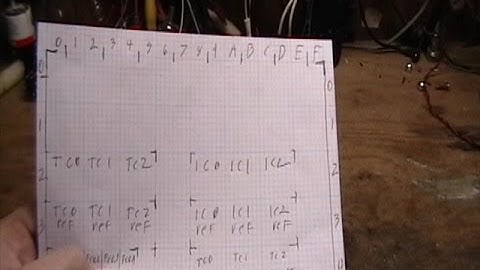 0 1 2 3 4 5 6 7 8 9 A B C D E F
0 0
1 1
2 TC0 TC1 TC2 IC0 IC1 IC2 2
3 TC0 TC1 TC2 IC0 IC1 IC2 3
ref ref ref ref ref ref
TC0 TC1 TC2